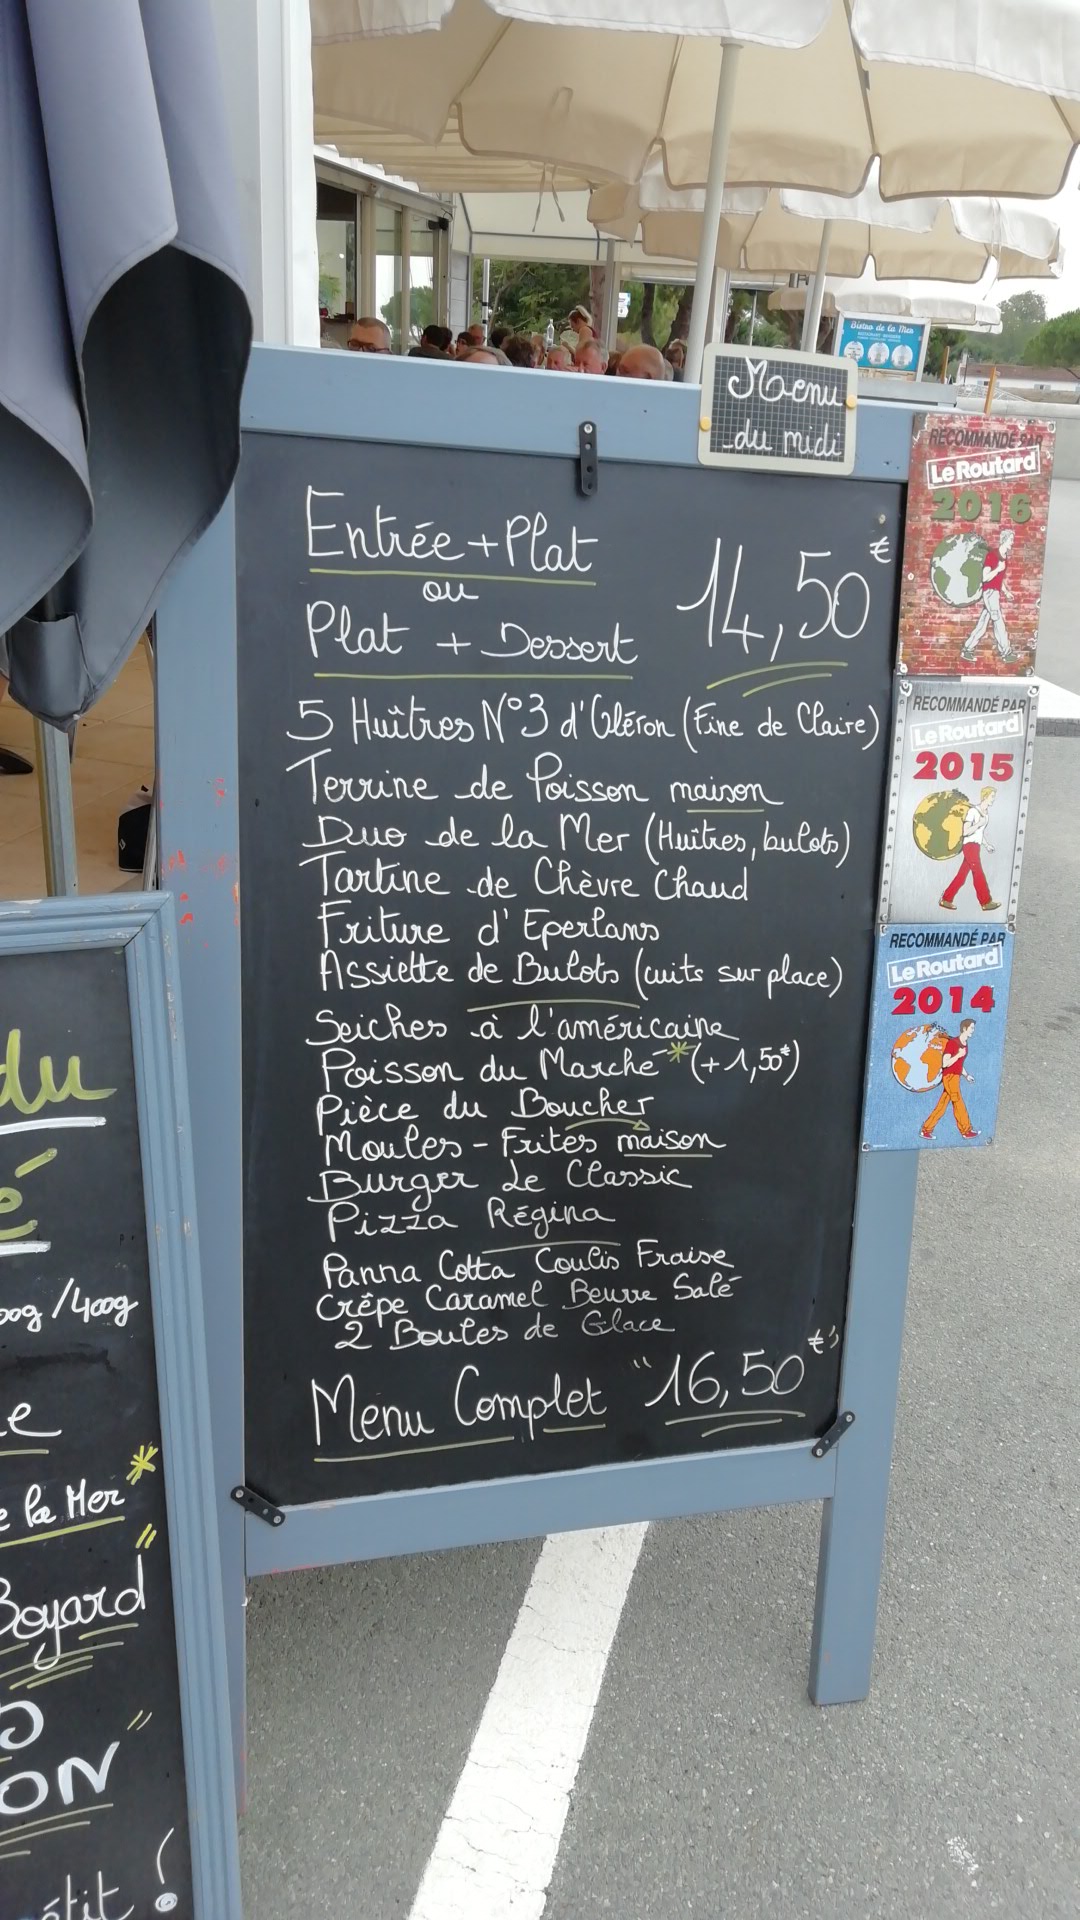 Bistro de la Mer
Menu
du midi
Entrée + Plat
ou
Plat + Dessert
14,50€
5 Huîtres N°3 d'Oléron (Fine de Claire)
Terrine de Poisson maison
Duo de la Mer (Huîtres, bulots)
Tartine de Chèvre Chaud
Friture d'Eperlans
Assiette de Bulots (cuits sur place)
Seiches à l'américaine
Poisson du Marché* (+1,50€)
Pièce du Boucher
Moules-Frites maison
Burger Le Classic
Pizza Régina
Panna Cotta Coulis Fraise
Crêpe Caramel Beurre Salé
2 Boules de Glace
Menu Complet "16,50€"
RECOMMANDÉ PAR
Le Routard
2016
RECOMMANDÉ PAR
Le Routard
2015
RECOMMANDÉ PAR
Le Routard
2014
du
é
00g/400g
e
e la Mer*
Boyard"
ON"
étit !